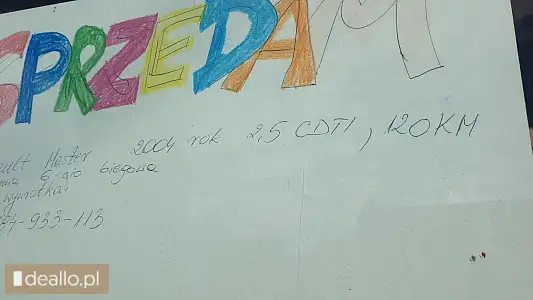 SPRZEDAM
ult Master 2004 rok 2,5 CDTI, 120KM
nia 6-cio biegowa
wywrotka
84-933-113
deallo.pl